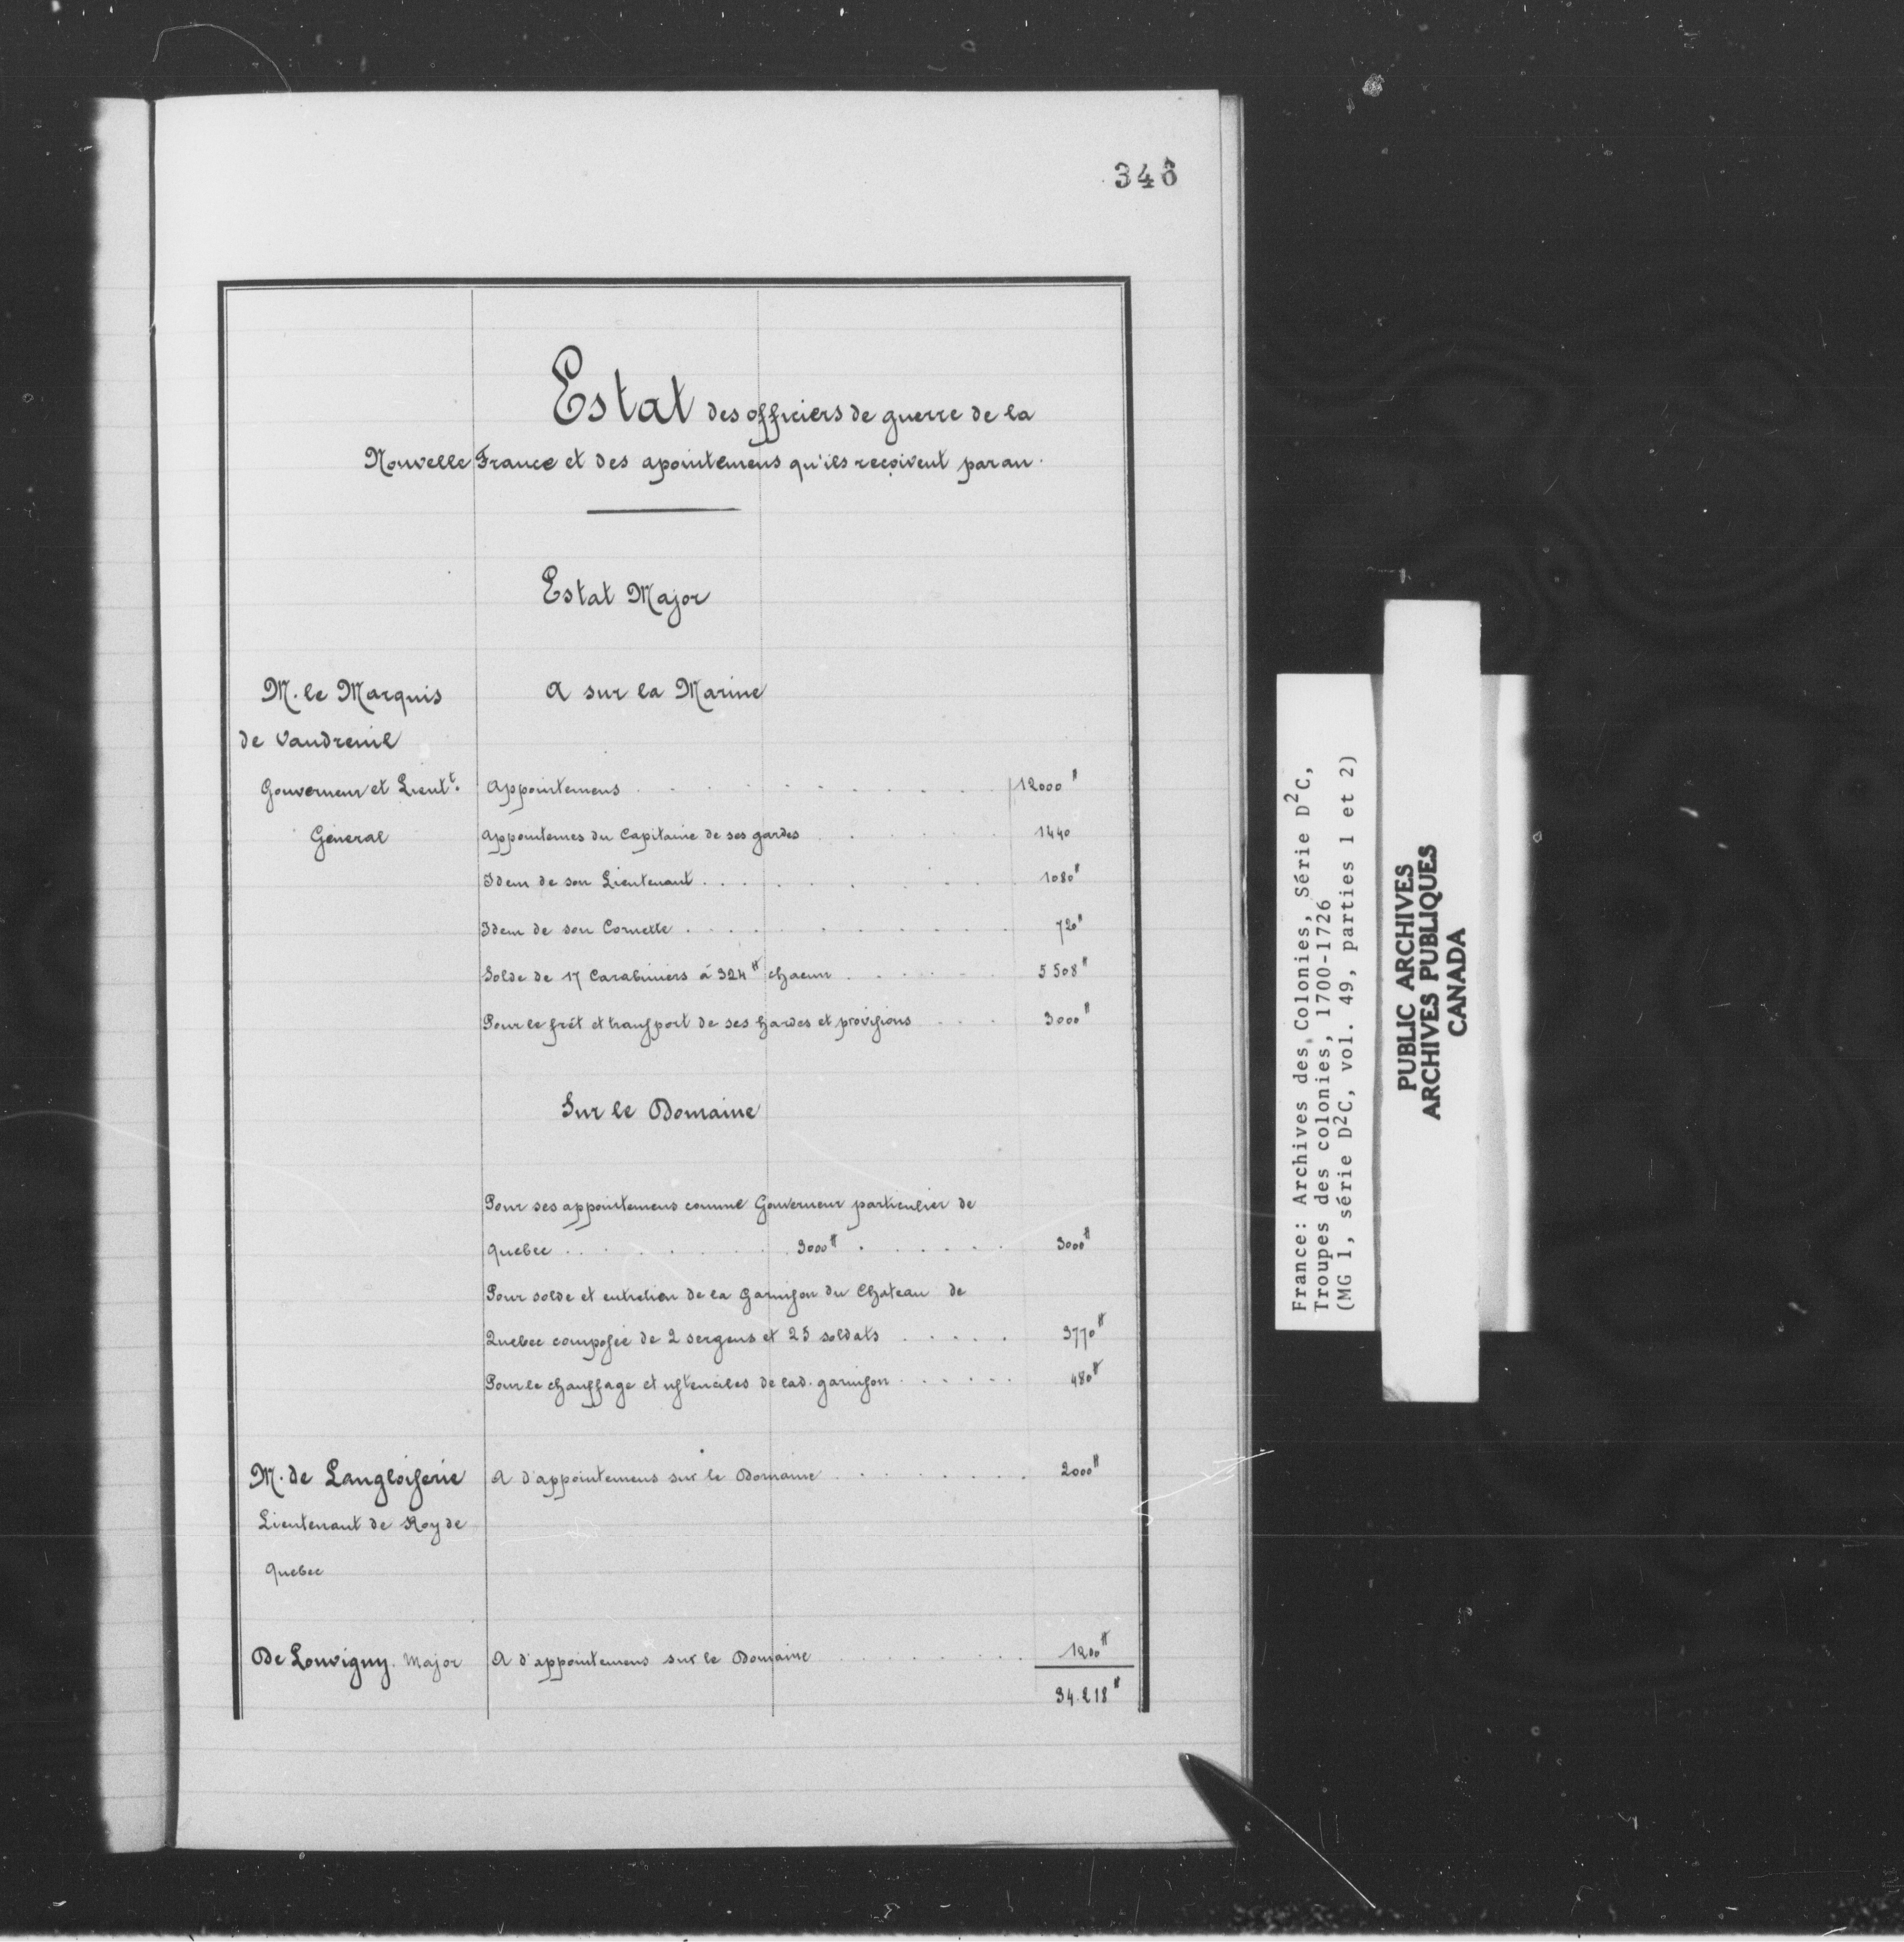 346
Estat des officiers de guerre de la
Nouvelle France et des apointemens qu'ils reçoivent par an.
Estat Major
M. le Marquis A sur la Marine
de Vaudreuil
Gouverneur et Lieut.t Appointemens 12000 ₶
Géneral Appointemes du Capitaine de ses gardes 1440
Idem de son Lieutenant 1080 ₶
Idem de son Cornette 720 ₶
Solde de 17 Carabiniers á 324 ₶ chacun 5508 ₶
Pour le frét et transport de ses hardes et provisions 3000 ₶
Sur le Domaine
Pour ses appointemens comme Gouverneur particulier de
Quebec 3000 ₶ 3000 ₶
Pour solde et entretien de la Garnison du Chateau de
Quebec composée de 2 sergens et 25 soldats 3770 ₶
Pour le chauffage et ustenciles de lad. garnison 480 ₶
M. de Langloiserie A d'appointemens sur le Domaine 2000 ₶
Lieutenant de Roy de
Quebec
De Louvigny. Major A d'appointemens sur le Domaine 1200 ₶
34.218 ₶
France: Archives des Colonies, Série D²C,
Troupes des colonies, 1700-1726
(MG 1, série D²C, vol. 49, parties 1 et 2)
PUBLIC ARCHIVES
ARCHIVES PUBLIQUES
CANADA